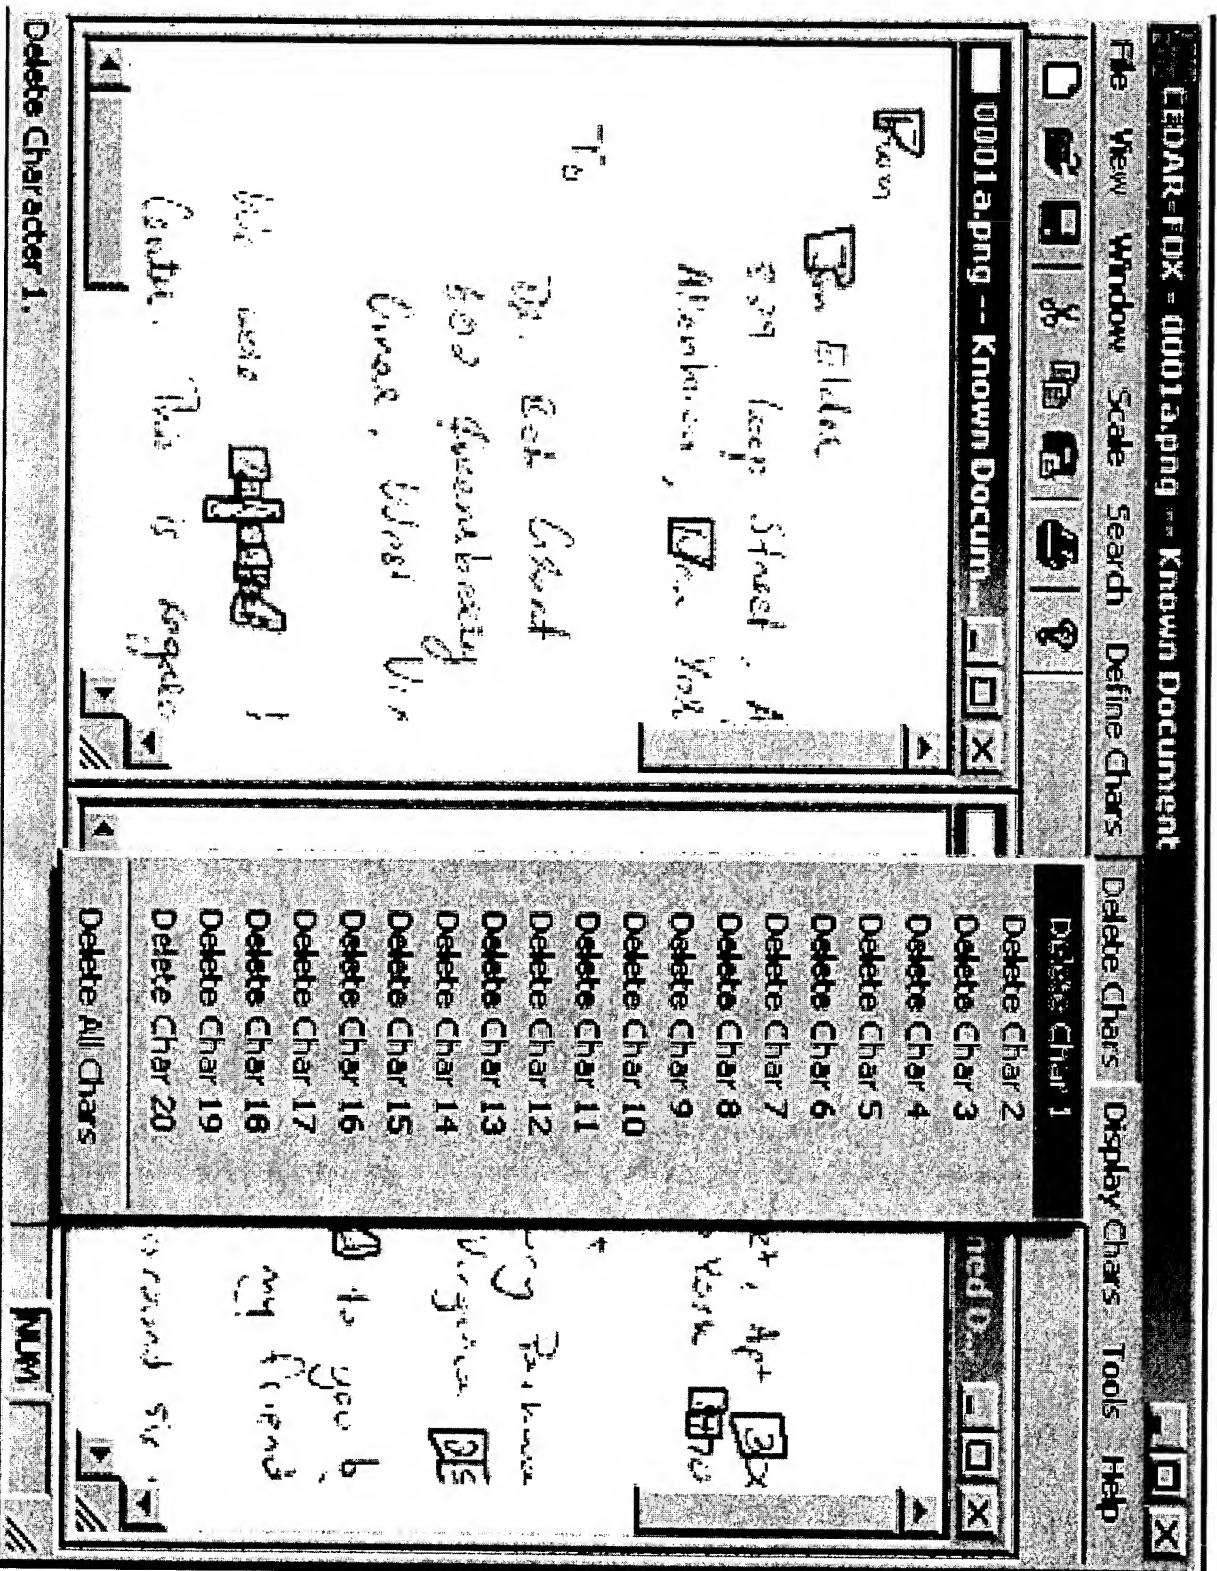 CEDAR-FOX - 0001a.png -- Known Document
File View Window Scale Search Define Chars Delete Chars Display Chars Tools Help
0001a.png -- Known Docum...
From
Jim Elder
829 Loop Street, A
Allentown, New York
To
Dr. Bob Grant
602 Queensberry
Omar, West Vir
We were
Center. This is
Delete Char 1
Delete Char 2
Delete Char 3
Delete Char 4
Delete Char 5
Delete Char 6
Delete Char 7
Delete Char 8
Delete Char 9
Delete Char 10
Delete Char 11
Delete Char 12
Delete Char 13
Delete Char 14
Delete Char 15
Delete Char 16
Delete Char 17
Delete Char 18
Delete Char 19
Delete Char 20
Delete All Chars
et, Apt 3
York
Virginia 25
to you b
my friend
around six
Delete Character 1.
NUM